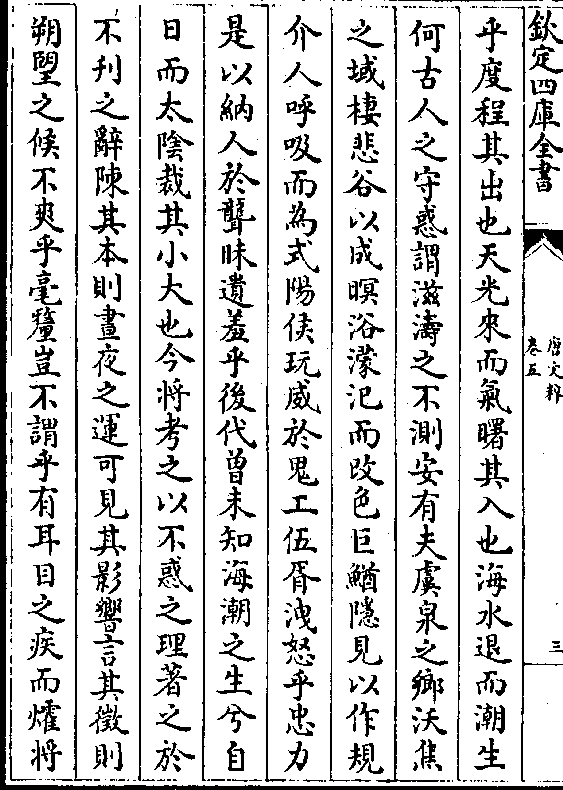 欽定四庫全書
唐文粹
卷五
三
乎度程其出也天光來而氣曙其入也海水退而潮生
何古人之守惑謂滋濤之不測安有夫虞泉之鄉沃焦
之域棲悲谷以成暝浴濛汜而改色巨鰌隱見以作規
介人呼吸而為式陽侯玩威於鬼工伍胥洩怒乎忠力
是以納人於聾昧遺羞乎後代曾未知海潮之生兮自
日而太陰裁其小大也今將考之以不惑之理著之於
不刋之辭陳其本則晝夜之運可見其影響言其徵則
朔朢之候不爽乎毫釐豈不謂乎有耳目之疾而燿將